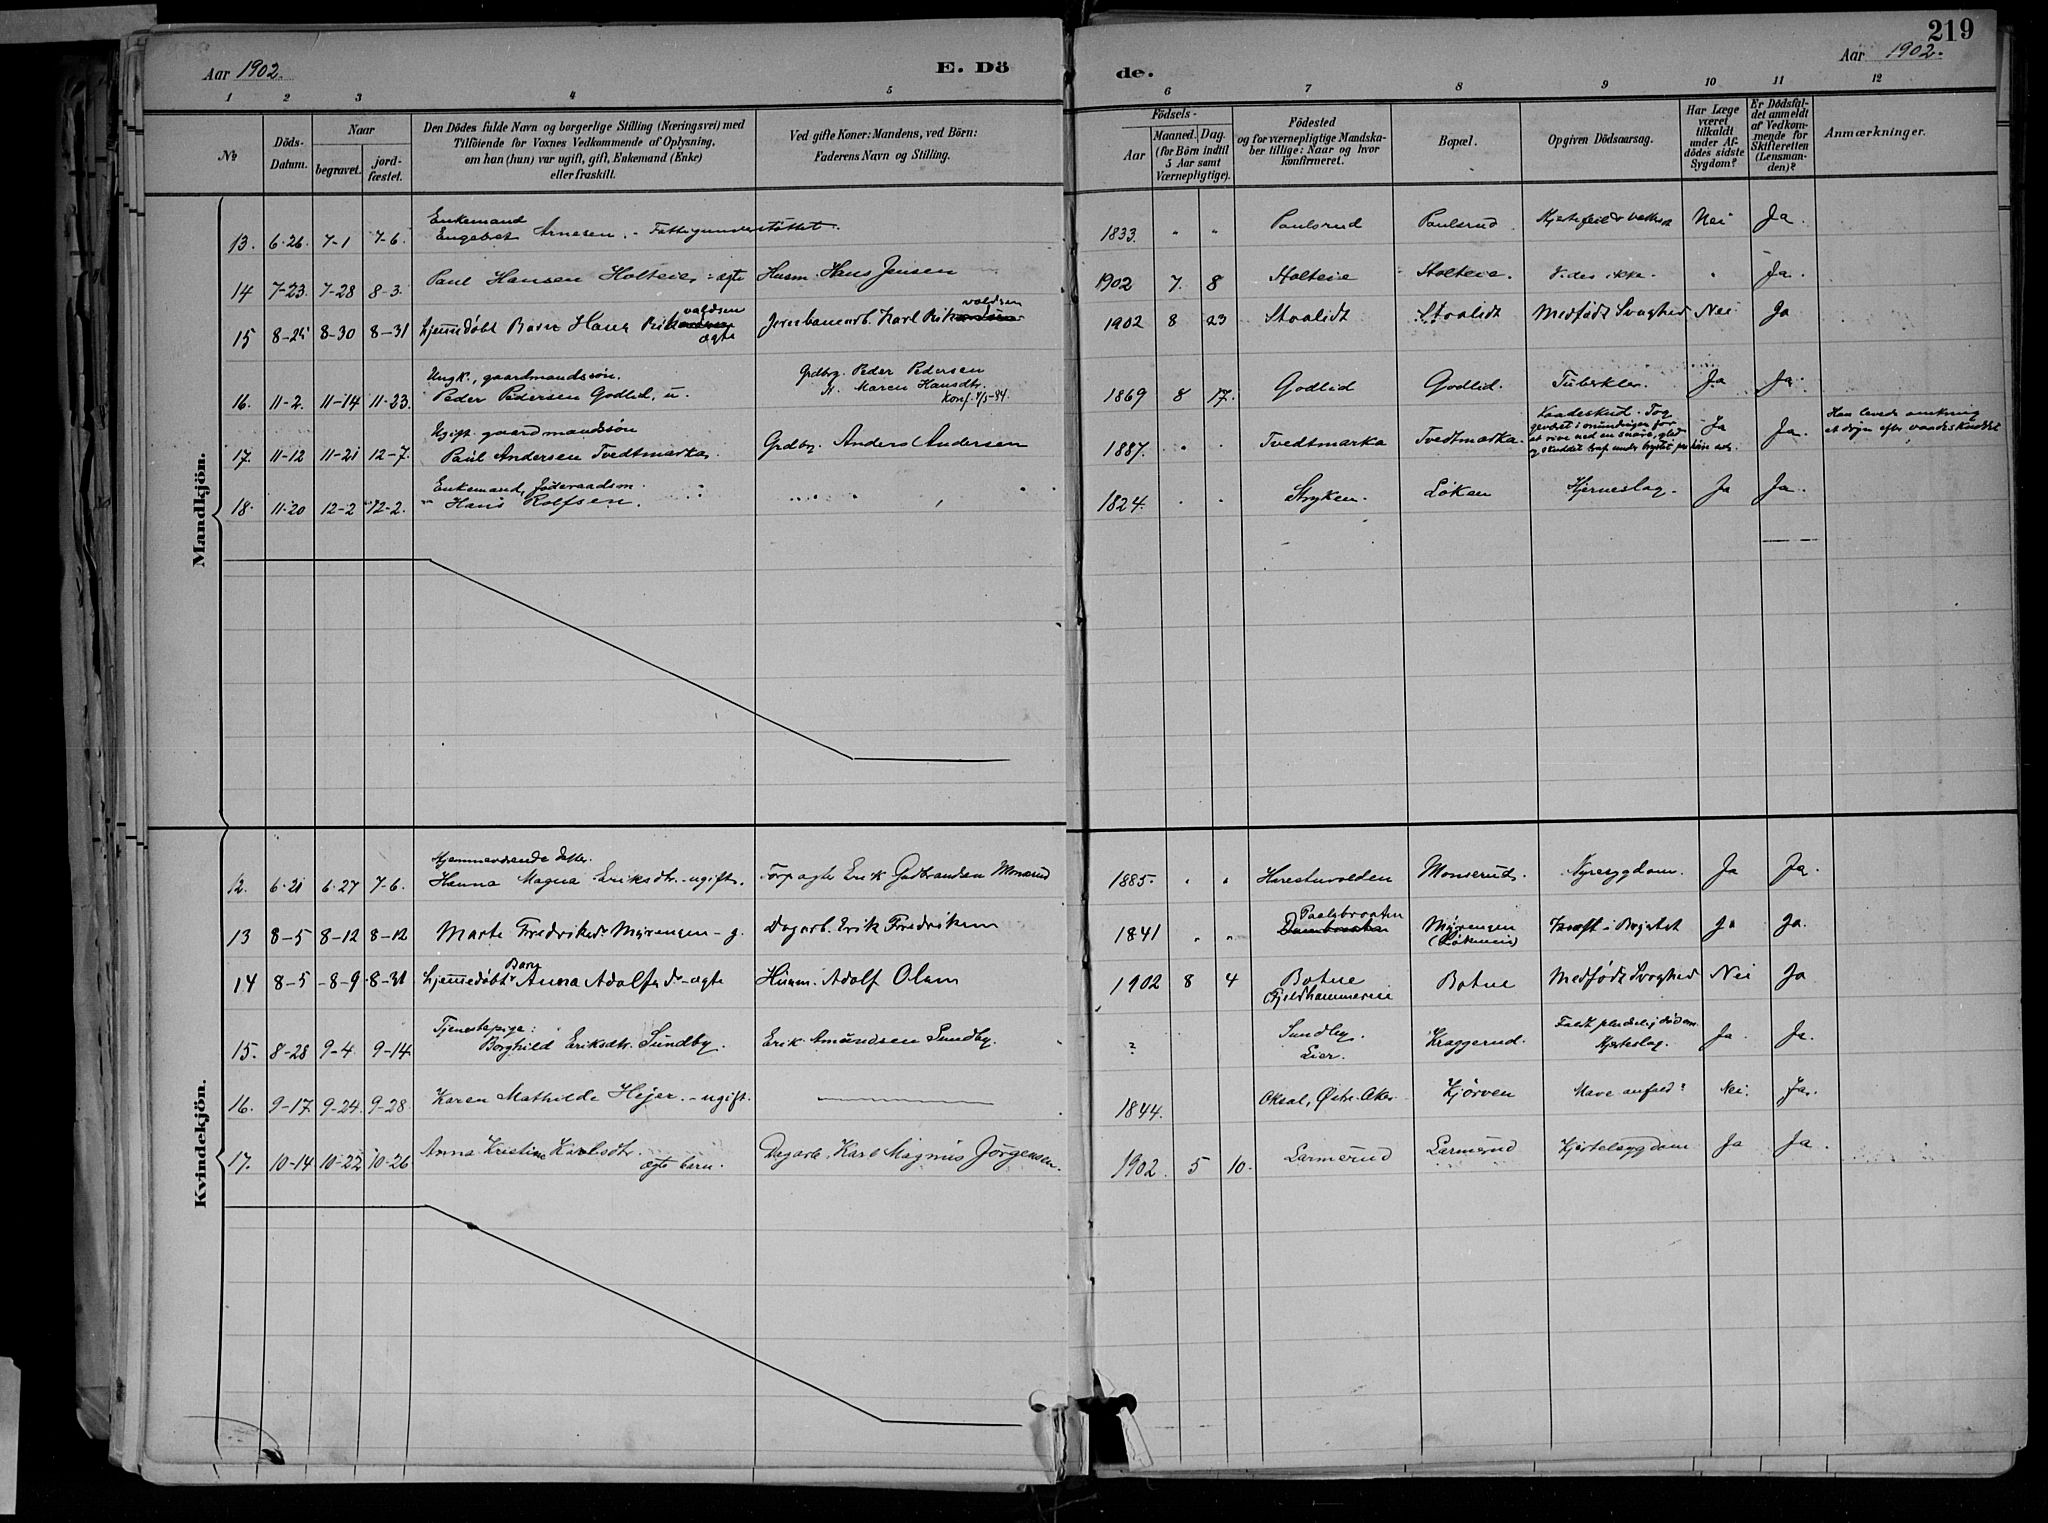 219
Aar 1902.
E. Dö
de.
Aar 1902.
1 2 3 4 5 6 7 8 9 10 11 12
No
Döds-Datum.
Naar
begravet.
jord-fæstet.
Den Dödes fulde Navn og borgerlige Stilling (Næringsvei) med
Tilföiende for Voxnes Vedkommende af Oplysning,
om han (hun) var ugift, gift, Enkemand (Enke)
eller fraskilt.
Ved gifte Koner: Mandens, ved Börn:
Faderens Navn og Stilling.
Födsels-
Aar
Maaned. Dag.
(for Börn indtil
5 Aar samt
Værnepligtige).
Födested
og for værnepligtige Mandska-
ber tillige: Naar og hvor
konfirmeret.
Bopæl.
Opgiven Dödsaarsag.
Har Læge
været
tilkaldt
under Af-
dödes sidste
Sygdom?
Er Dödsfal-
det anmeldt
af Vedkom-
mende for
Skifteretten
(Lensman-
den)?
Anmærkninger.
Mandkjön.
Enkemand
13. 6-26. 7-1 7-6. Engebret Arnesen. - Fattigunderstøttet. 1833. " " Paulsrud Paulsrud. Hjertefeil & Nei Ja.
14 7-23. 7-28 8-3. Paul Hansen Holteie - ægte Husm. Hans Jensen 1902 7. 8 Holteie Holteie. Vides ikke. " Ja.
valdsen valdsen
15 8-25 8-30 8-31 hjemmedøbt Barn Hans Rik ægte Jernbanearb. Karl Rik 1902 8 23 Staalidt Staalidt Medfødt Svaghed Nei Ja
Ungk., gaardmandssøn. Grdbrg. Peder Pedersen
16. 11-2. 11-14 11-23. Peder Pedersen Godlid, u. Maren Hansdtr. 1869 8 17. Godlid Godlid. Tuberkler. Ja Ja.
Konf.
Ugift gaardmandssøn
17. 11-12 11-21 12-7. Paul Andersen Tvedtmarka. Grdbrg. Anders Andersen 1887. " " Tvedtmarka Tvedtmarka. Vaadeskud. Tog
geværet i mundingen for
at rive ned en snare, gled
og skuddet traf under brystet Ja Ja. Han levede omkring
et døgn efter vaadeskuddet
Enkemand, føderaadsm.
18. 11-20 12-2 12-2. Hans Rolfsen. 1824. " " Stryken. Løken Hjerneslag. Ja Ja.
Kvindekjön.
Hjemmeværende datter.
12. 6-21 6-27 7-6. Hanna Magna Eriksdtr. - ugift. Forpagter Erik Gudbrandsen Monserud 1885. " " Harestuvolden Monserud. Nyresygdom. Ja Ja.
13 8-5 8-12 8-12 Marte Fredriksdr Myrengen - g. Dagarb. Erik Fredriksen 1841 " " Paalsbraaten Myrengen Kræft i Brystet ja ja.
Barn
14 8-5 8-9 8-31 hjemmedøbt Anna Adolfsdr - ægte Husm. Adolf Olsen 1902 8 4 Botne Botne Medfødt Svaghed Nei Ja
Tjenestepige:
15. 8-28 9-4. 9-14 Borghild Eriksdtr. Sundby. Erik Amundsen Sundby. ? Sundby. Lier. Kraggerud. Faldt pludselig død om.
Hjerteslag. Ja. Ja.
16. 9-17 9-24. 9-28. Karen Mathilde Hejer. - ugift. 1844. Oksal, Østre Aker Kjørven Mave anfald? Nei. Ja.
17. 10-14 10-22 10-26 Anna Kristine Karlsdtr. Dagarb. Karl Magnus Jørgensen. 1902. 5 10. Larmerud Larmerud Kjertelsygdom Ja Ja.
ægte barn.